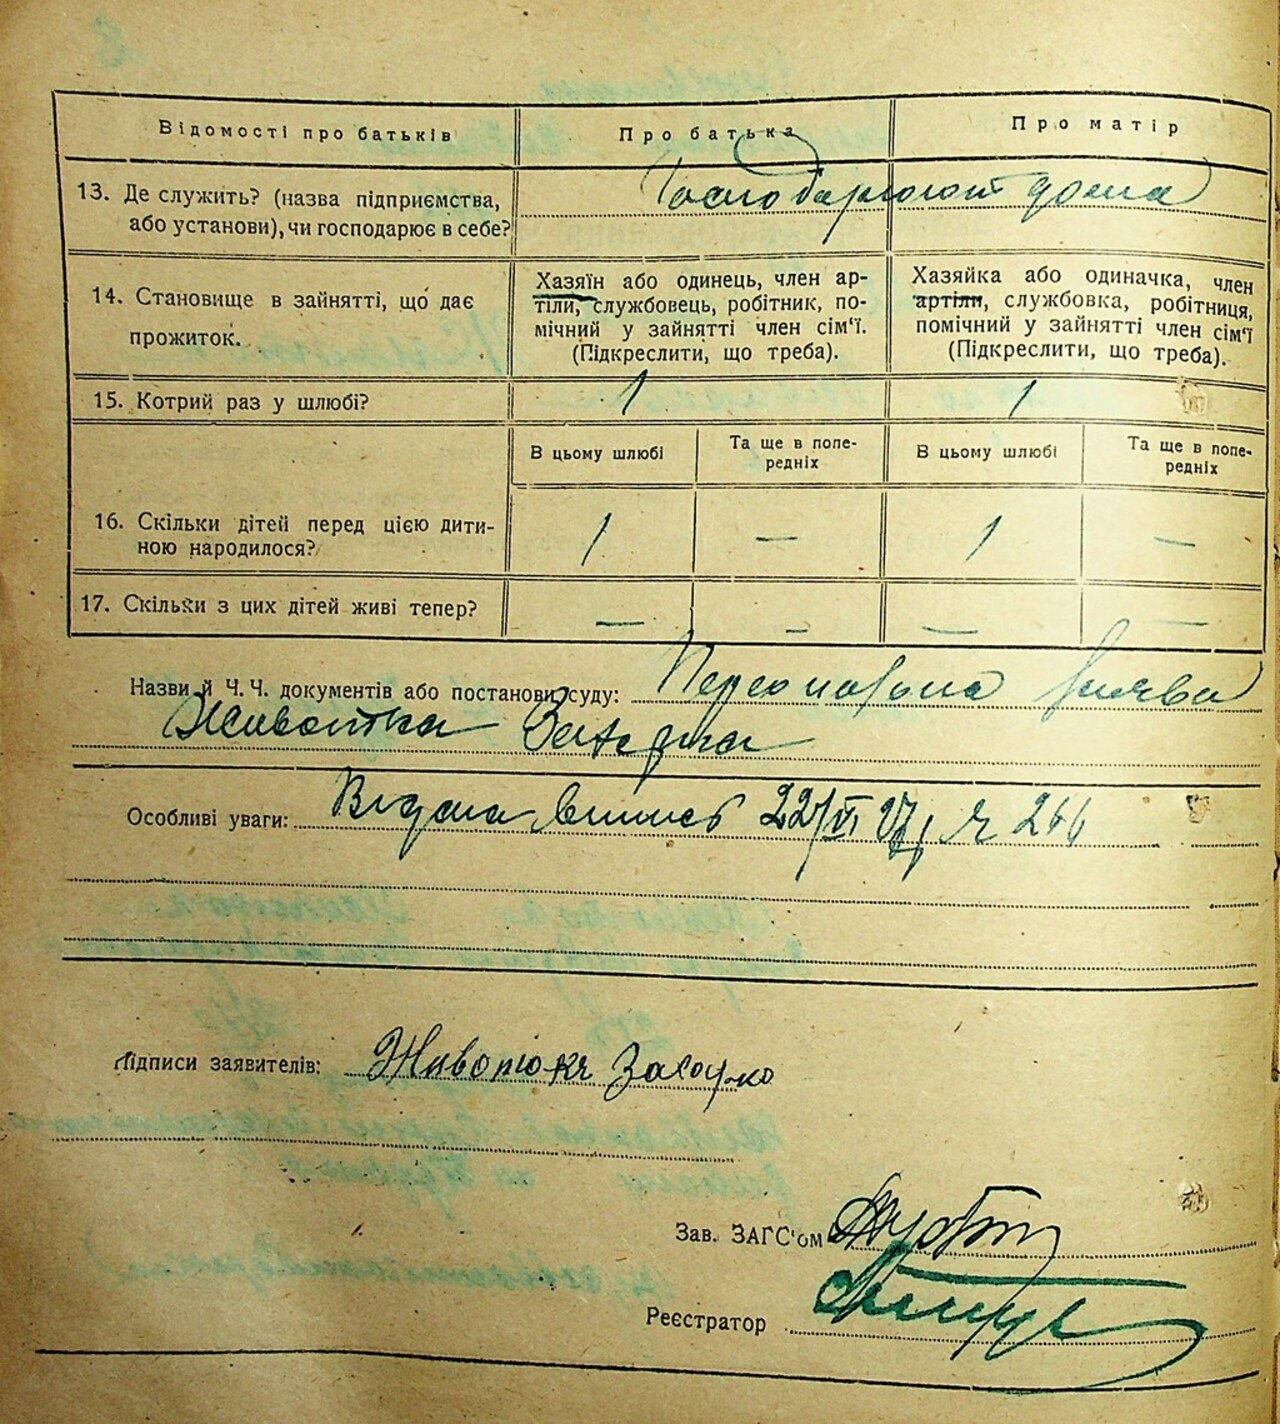 Відомості про батьків Про батька Про матір
13. Де служить? (назва підприємства,
або установи), чи господарює в себе?
Господарюют дома
14. Становище в зайнятті, що дає
прожиток.
Хазяїн або одинець, член ар-
тіли, службовець, робітник, по-
мічний у зайнятті член сім'ї.
(Підкреслити, що треба).
Хазяйка або одиначка, член
артіли, службовка, робітниця,
помічний у зайнятті член сім'ї
(Підкреслити, що треба).
15. Котрий раз у шлюбі? 1 1
В цьому шлюбі
Та ще в попе-
редніх
В цьому шлюбі
Та ще в попе-
редніх
16. Скільки дітей перед цією дити-
ною народилося?
1 — 1 —
17. Скільки з цих дітей живі тепер? — — — —
Назви й Ч.Ч. документів або постанови суду:
Особливі уваги: Видана выпись 22/VI 27 № 266
Підписи заявителів: Животюк Захарко
Зав. ЗАГС'ом
Реєстратор